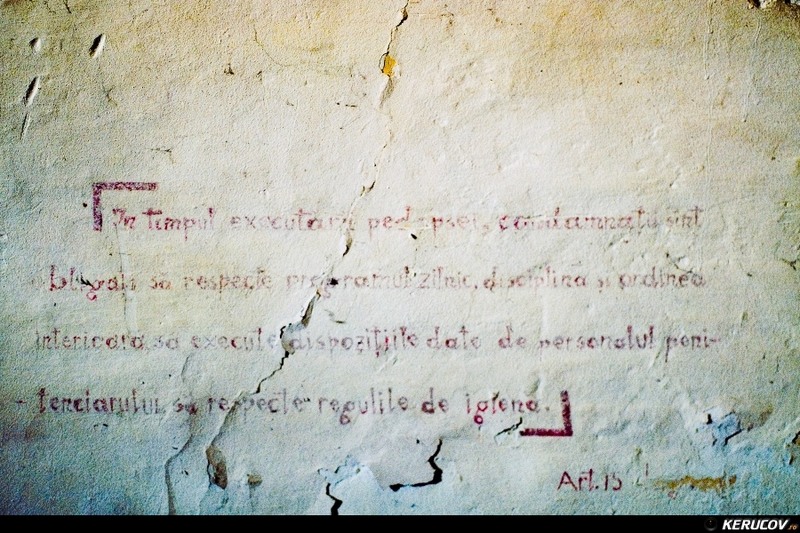 In timpul executarii pedepsei, condamnatii sint
obligati să respecte programul zilnic, disciplina și ordinea
interioară să execute dispozițiile date de personalul peni-
- tenciarului să respecte regulile de igienă.
Art. 15
KERUCOV.ro